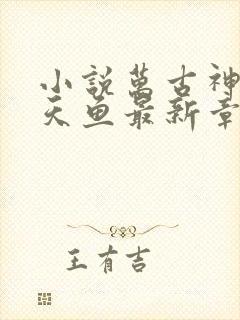 小說萬古神
天魚最新章
王有吉